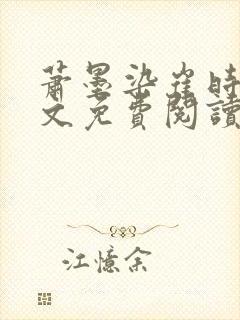 萧墨染崔时
文免费阅读
江憶余